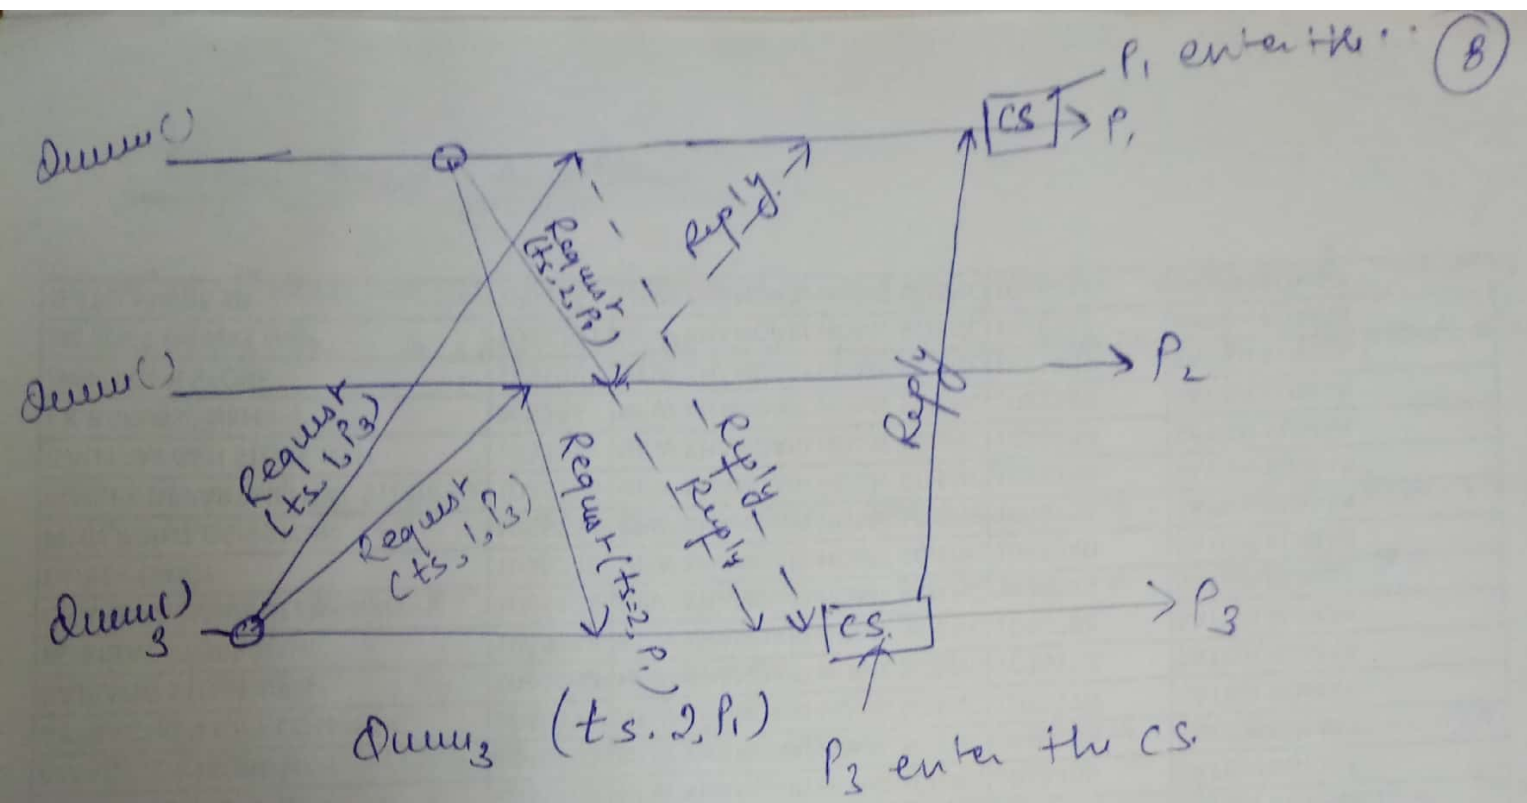 P1 enter the ..
8
Queue()
CS
P1
Request
(ts, 2, P1)
Reply
Queue()
P2
Request
(ts, 1, P3)
Request
(ts, 1, P3)
Request (ts=2, P1)
Reply
Reply
Reply
Queue()
3
CS.
P3
Queue3 (ts. 2, P1)
P3 enter the CS.